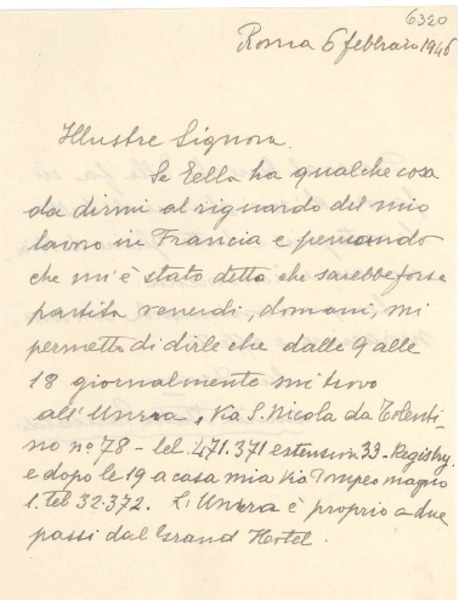 6320
Roma 6 febbraio 1946
Illustre Signora.
Se Ella ha qualche cosa
da dirmi al riguardo del mio
lavoro in Francia e pensando
che mi è stato detto che sarebbe forse
partita venerdi, domani, mi
permetto di dirle che dalle 9 alle
18 giornalmente mi trovo
all'Unrra, Via S. Nicola da Tolenti-
no nº 78 - tel. 471.371 extension 33 - Registry.
e dopo le 19 a casa mia Via Pompeo magno
1. Tel 32-372. L'Unrra è proprio a due
passi dal Grand Hotel.